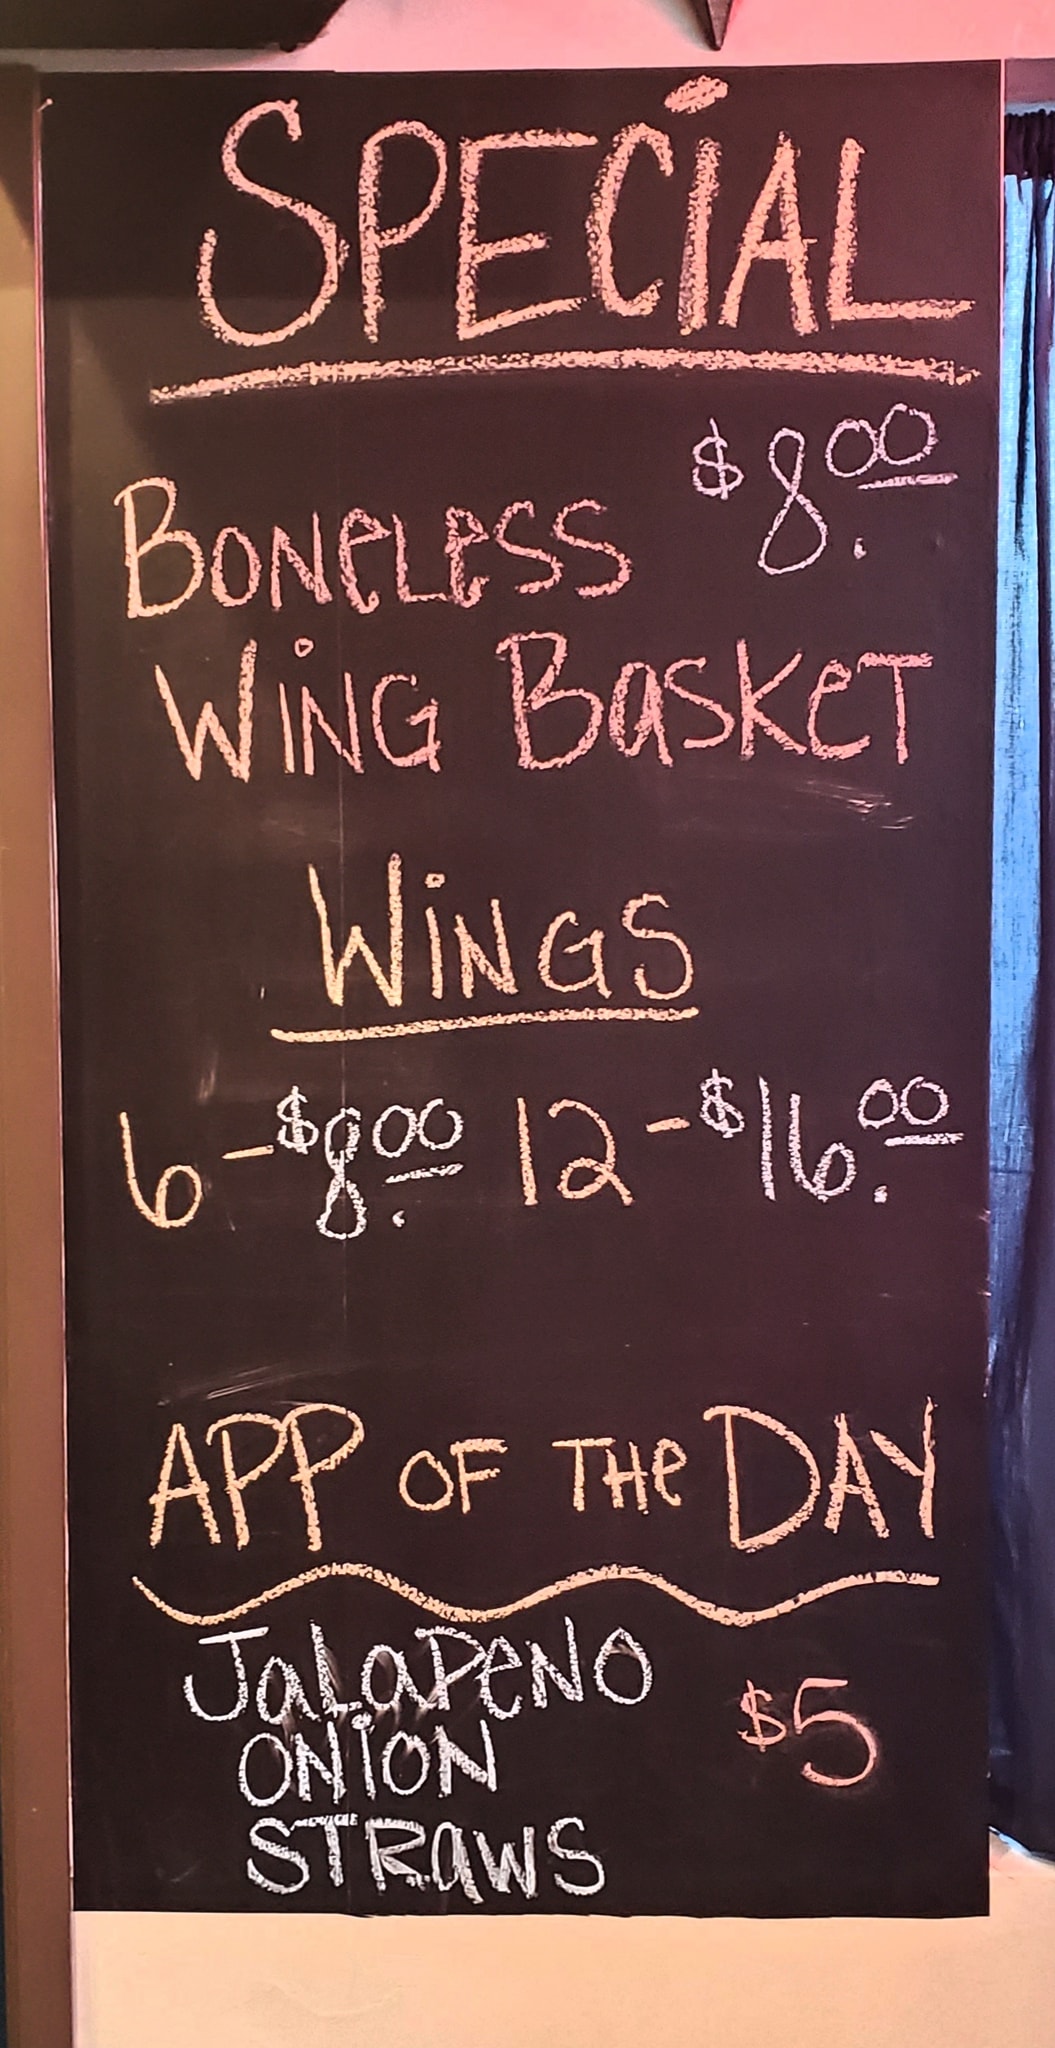 SPECIAL
$8.00
BONELESS
WING BASKET
WINGS
6-$8.00 12-$16.00
APP OF THE DAY
JALAPENO
ONION
STRAWS
$5